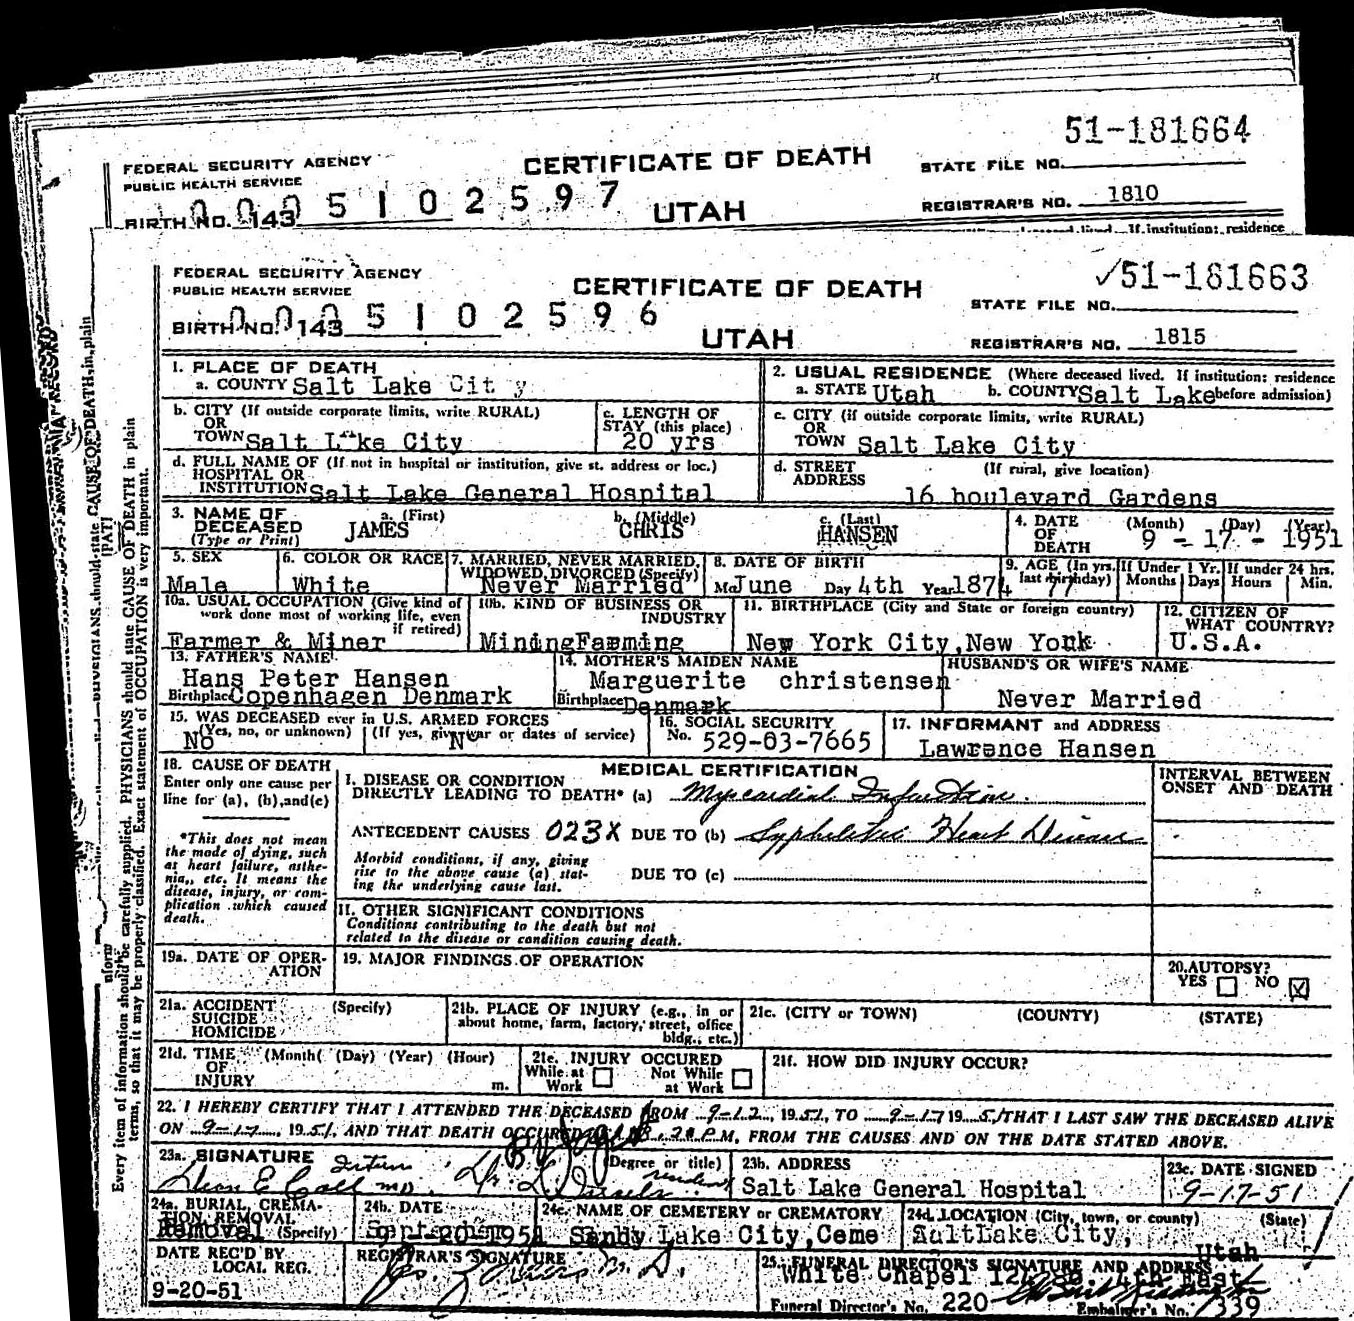 51-181664
FEDERAL SECURITY AGENCY
PUBLIC HEALTH SERVICE
CERTIFICATE OF DEATH
STATE FILE NO.
BIRTH NO. 143
0005102597
UTAH
REGISTRAR'S NO. 1810
lived. If institution: residence
✓51-181663
FEDERAL SECURITY AGENCY
PUBLIC HEALTH SERVICE
CERTIFICATE OF DEATH
STATE FILE NO.
BIRTH NO. 143
0005102596
UTAH
REGISTRAR'S NO. 1815
1. PLACE OF DEATH
a. COUNTY Salt Lake City
2. USUAL RESIDENCE (Where deceased lived. If institution: residence before admission)
a. STATE Utah b. COUNTY Salt Lake
b. CITY (If outside corporate limits, write RURAL)
OR
TOWN Salt Lake City
c. LENGTH OF STAY (this place)
20 yrs
c. CITY (if outside corporate limits, write RURAL)
OR
TOWN Salt Lake City
d. FULL NAME OF (If not in hospital or institution, give st. address or loc.)
HOSPITAL OR
INSTITUTION Salt Lake General Hospital
d. STREET ADDRESS (If rural, give location)
16 boulevard Gardens
3. NAME OF DECEASED (Type or Print)
a. (First) JAMES
b. (Middle) CHRIS
c. (Last) HANSEN
4. DATE OF DEATH (Month) (Day) (Year)
9 - 17 - 1951
5. SEX
Male
6. COLOR OR RACE
White
7. MARRIED, NEVER MARRIED, WIDOWED, DIVORCED (Specify)
Never Married
8. DATE OF BIRTH
Mo June Day 4th Year 1874
9. AGE (In yrs. last birthday)
77
If Under 1 Yr. Months Days
If under 24 hrs. Hours Min.
10a. USUAL OCCUPATION (Give kind of work done most of working life, even if retired)
Farmer & Miner
10b. KIND OF BUSINESS OR INDUSTRY
MiningFarming
11. BIRTHPLACE (City and State or foreign country)
New York City,New York
12. CITIZEN OF WHAT COUNTRY?
U.S.A.
13. FATHER'S NAME
Hans Peter Hansen
Birthplace Copenhagen Denmark
14. MOTHER'S MAIDEN NAME
Marguerite christensen
Birthplace Denmark
HUSBAND'S OR WIFE'S NAME
Never Married
15. WAS DECEASED ever in U.S. ARMED FORCES
(Yes, no, or unknown) (If yes, give war or dates of service)
No
16. SOCIAL SECURITY
No. 529-03-7665
17. INFORMANT and ADDRESS
Lawrence Hansen
18. CAUSE OF DEATH
Enter only one cause per line for (a), (b),and(c)
*This does not mean the mode of dying, such as heart failure, asthenia, etc. It means the disease, injury, or complication which caused death.
MEDICAL CERTIFICATION
INTERVAL BETWEEN ONSET AND DEATH
I. DISEASE OR CONDITION
DIRECTLY LEADING TO DEATH* (a) Myocardial Infarction
ANTECEDENT CAUSES 023X DUE TO (b) Syphilitic Heart Disease
Morbid conditions, if any, giving rise to the above cause (a) stating the underlying cause last.
DUE TO (c)
II. OTHER SIGNIFICANT CONDITIONS
Conditions contributing to the death but not related to the disease or condition causing death.
19a. DATE OF OPERATION
19. MAJOR FINDINGS OF OPERATION
20. AUTOPSY?
YES ☐ NO ☒
21a. ACCIDENT (Specify)
SUICIDE
HOMICIDE
21b. PLACE OF INJURY (e.g., in or about home, farm, factory, street, office bldg., etc.)
21c. (CITY or TOWN) (COUNTY) (STATE)
21d. TIME OF INJURY (Month) (Day) (Year) (Hour) m.
21e. INJURY OCCURED
While at Work ☐ Not While at Work ☐
21f. HOW DID INJURY OCCUR?
22. I HEREBY CERTIFY THAT I ATTENDED THE DECEASED FROM 9-12, 1951, TO 9-17 1951 THAT I LAST SAW THE DECEASED ALIVE
ON 9-17, 1951, AND THAT DEATH OCCURED AT P.M, FROM THE CAUSES AND ON THE DATE STATED ABOVE.
23a. SIGNATURE (Degree or title)
Dean E Call MD. Intern
23b. ADDRESS
Salt Lake General Hospital
23c. DATE SIGNED
9-17-51
24a. BURIAL, CREMATION REMOVAL (Specify)
Removal
24b. DATE
Sept 20 1951
24c. NAME OF CEMETERY or CREMATORY
Sandy Lake City,Ceme
24d. LOCATION (City, town, or county) (State)
SaltLake City, Utah
DATE REC'D BY LOCAL REG.
9-20-51
REGISTRAR'S SIGNATURE
25. FUNERAL DIRECTOR'S SIGNATURE AND ADDRESS
White Chapel 4th East
Funeral Director's No. 220 Embalmer's No. 339
Every item of information should be carefully supplied. PHYSICIANS should state CAUSE OF DEATH in plain
terms, so that it may be properly classified. Exact statement of OCCUPATION is very important.